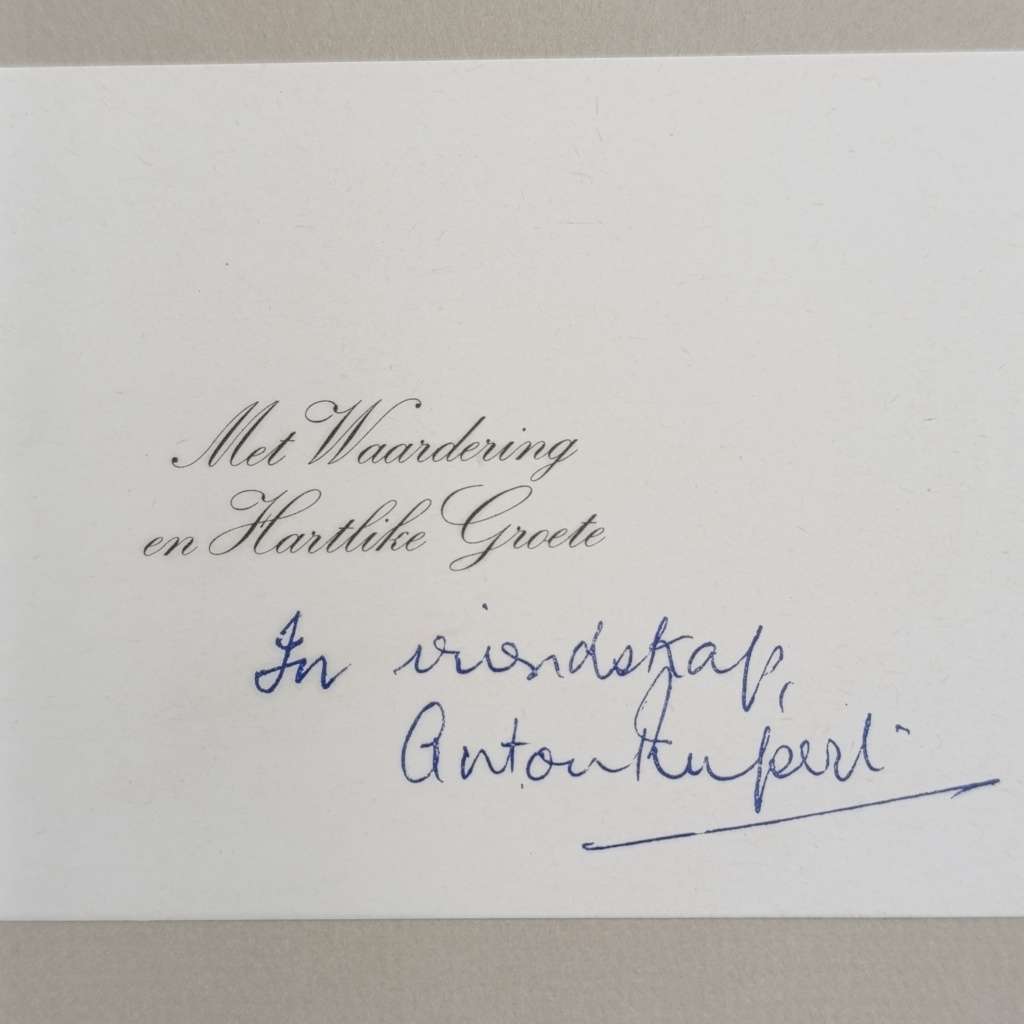 Met Waardering
en Hartlike Groete
In vriendskap,
Anton Rupert